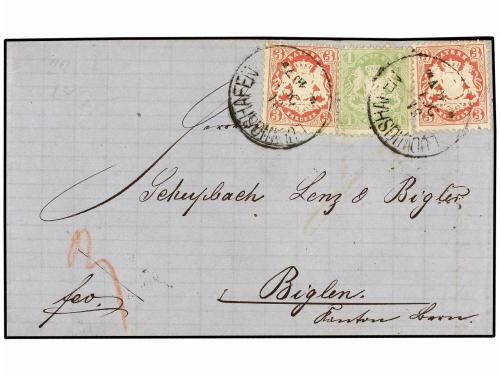 3 3 1 3 3
LUDWIGSHAFEN LUDWIGSHAFEN
Herren
Schüpbach Lenz & Bigler
fco.
Biglen.
Kanton Bern.